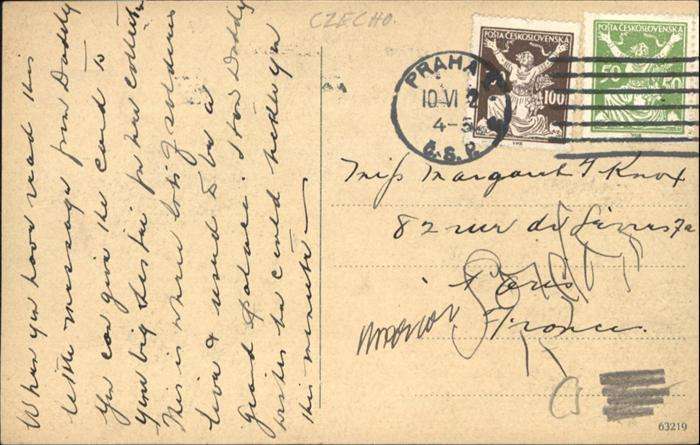 When you have read this
little message from Daddy
you can give the card to
your big sister for her collection
This is where lots of soldiers
live & used to be a
grand palace. I know Daddy
wishes he could hold you
this minute —
CZECHO.
POŠTA ČESKOSLOVENSKÁ
100
POŠTA ČESKOSLOVENSKÁ
50 50
PRAHA
10 VI 2
4-5
Č.S.P.
Miss Margaret T Knox
82 rue de
Paris
France.
63219